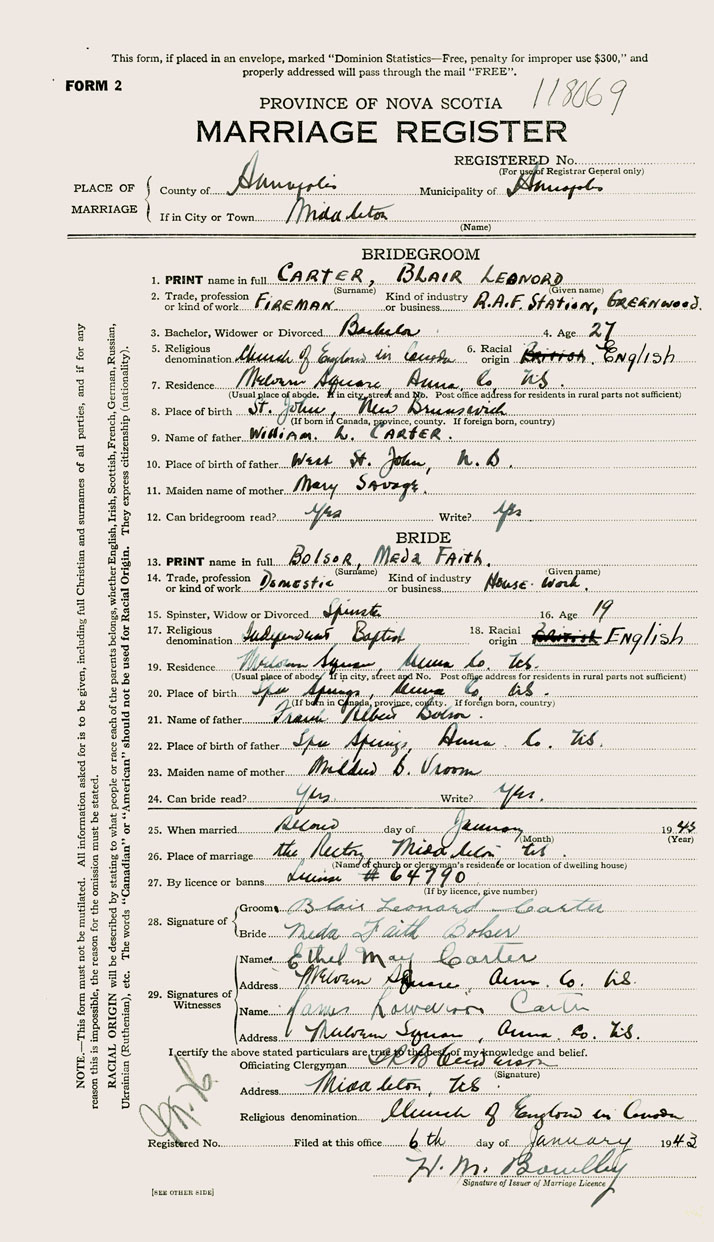 This form, if placed in an envelope, marked “Dominion Statistics—Free, penalty for improper use $300,” and
properly addressed will pass through the mail “FREE”.
FORM 2
118069
PROVINCE OF NOVA SCOTIA
MARRIAGE REGISTER
REGISTERED No.
(For use of Registrar General only)
PLACE OF MARRIAGE
County of Annapolis Municipality of Annapolis
If in City or Town Middleton
(Name)
BRIDEGROOM
1. PRINT name in full CARTER, BLAIR LEONORD
(Surname) (Given name)
2. Trade, profession or kind of work FIREMAN Kind of industry or business R.A.F. STATION, GREENWOOD.
3. Bachelor, Widower or Divorced Bachelor 4. Age 27
5. Religious denomination Church of England in Canada 6. Racial origin British English
7. Residence Melvern Square, Anna. Co, N.S.
(Usual place of abode. If in city, street and No. Post office address for residents in rural parts not sufficient)
8. Place of birth St. John, New Brunswick
(If born in Canada, province, county. If foreign born, country)
9. Name of father WILLIAM. L. CARTER.
10. Place of birth of father West St. John, N.B.
11. Maiden name of mother Mary Savage.
12. Can bridegroom read? Yes Write? Yes
BRIDE
13. PRINT name in full BOLSOR, MEDA FAITH.
(Surname) (Given name)
14. Trade, profession or kind of work Domestic Kind of industry or business House Work.
15. Spinster, Widow or Divorced Spinster 16. Age 19
17. Religious denomination Independent Baptist 18. Racial origin British ENGlish
19. Residence Melvern Square, Anna Co. N.S.
(Usual place of abode. If in city, street and No. Post office address for residents in rural parts not sufficient)
20. Place of birth Spa Springs, Anna Co, N.S.
(If born in Canada, province, county. If foreign born, country)
21. Name of father Albert Bolsor.
22. Place of birth of father Spa Springs, Anna. Co. N.S.
23. Maiden name of mother Mildred B. Vroom
24. Can bride read? Yes Write? Yes.
25. When married Second day of January 1943
(Month) (Year)
26. Place of marriage the Rectory, Middleton, N.S.
(Name of church or clergyman's residence or location of dwelling house)
27. By licence or banns License # 64790
(If by licence, give number)
28. Signature of
Groom Blair Leonard Carter
Bride Meda Faith Bolser
29. Signatures of Witnesses
Name Ethel May Carter
Address Melvern Square, Anna. Co. N.S.
Name James Carter
Address Melvern Square, Anna. Co. N.S.
I certify the above stated particulars are true to the best of my knowledge and belief.
Officiating Clergyman
(Signature)
Address Middleton, N.S.
Religious denomination Church of England in Canada
Registered No. Filed at this office 6th day of January 1943
Signature of Issuer of Marriage Licence
[SEE OTHER SIDE]
NOTE.—This form must not be mutilated. All information asked for is to be given, including full Christian and surnames of all parties, and if for any
reason this is impossible, the reason for the omission must be stated.
RACIAL ORIGIN will be described by stating to what people or race each of the parents belongs, whether English, Irish, Scottish, French, German, Russian,
Ukrainian (Ruthenian), etc. The words “Canadian” or “American” should not be used for Racial Origin. They express citizenship (nationality).